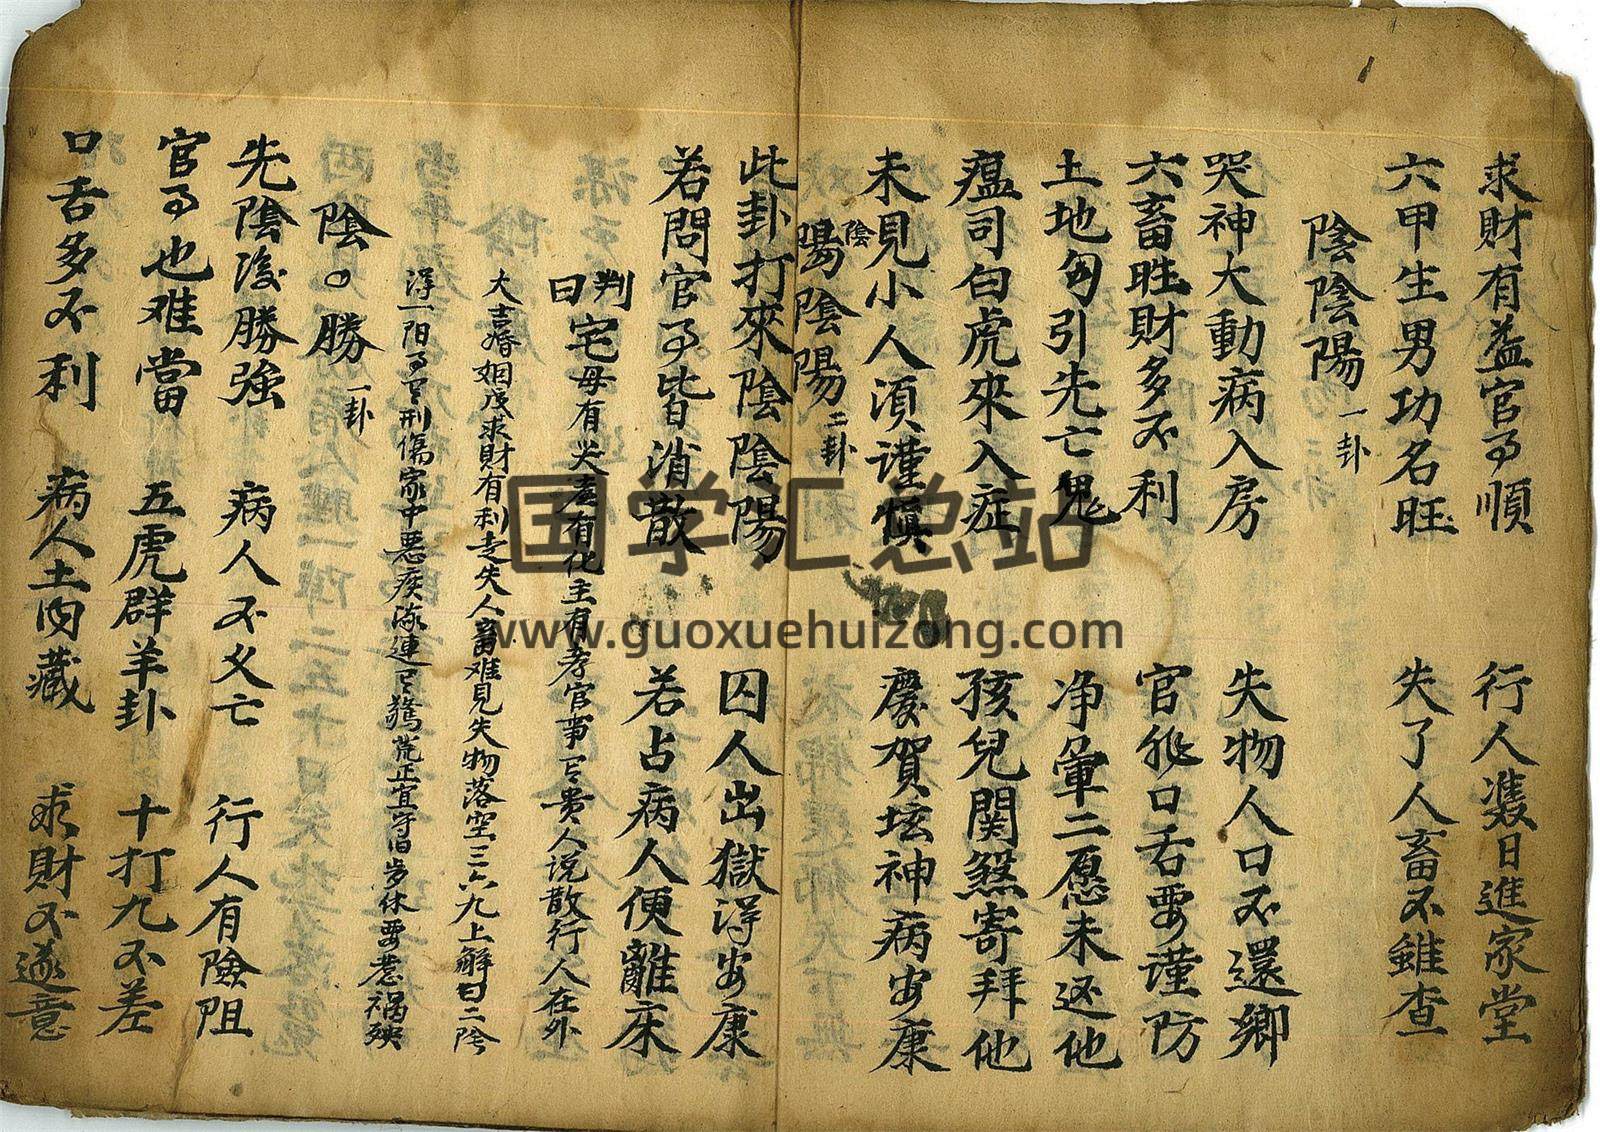 求財有益官司順 行人𨾏日進家堂
六甲生男功名旺 失了人畜不雖查
陰陰陽 一卦
哭神大動病入房 失物人口不還鄉
六畜旺財多不利 官非口舌要謹防
土地勾引先亡鬼 净軍二愿未还他
瘟司白虎來入症 孩兒関煞寄拜他
未見小人須謹慎 慶賀坛神病安康
陰陽陰陽 二卦
此卦打來陰陰陽 囚人出獄淂安康
若問官司皆消散 若占病人便離床
判曰 宅母有灾産有化主有孝官事言貴人说散行人在外
大吉婚姻成求財有利走失人畜难見失物落空三六九上解曰二陰
淂一阳司主刑傷家中惡疾流連已驚荒正宜守旧步休要惹祸殃
陰。勝 一卦
先陰後勝強 病人不乂亡 行人有險阻
官司也难當 五虎群羊卦 十打九不差
口舌多不利 病人土内藏 求財不遂意
国学汇总站
www.guoxuehuizong.com